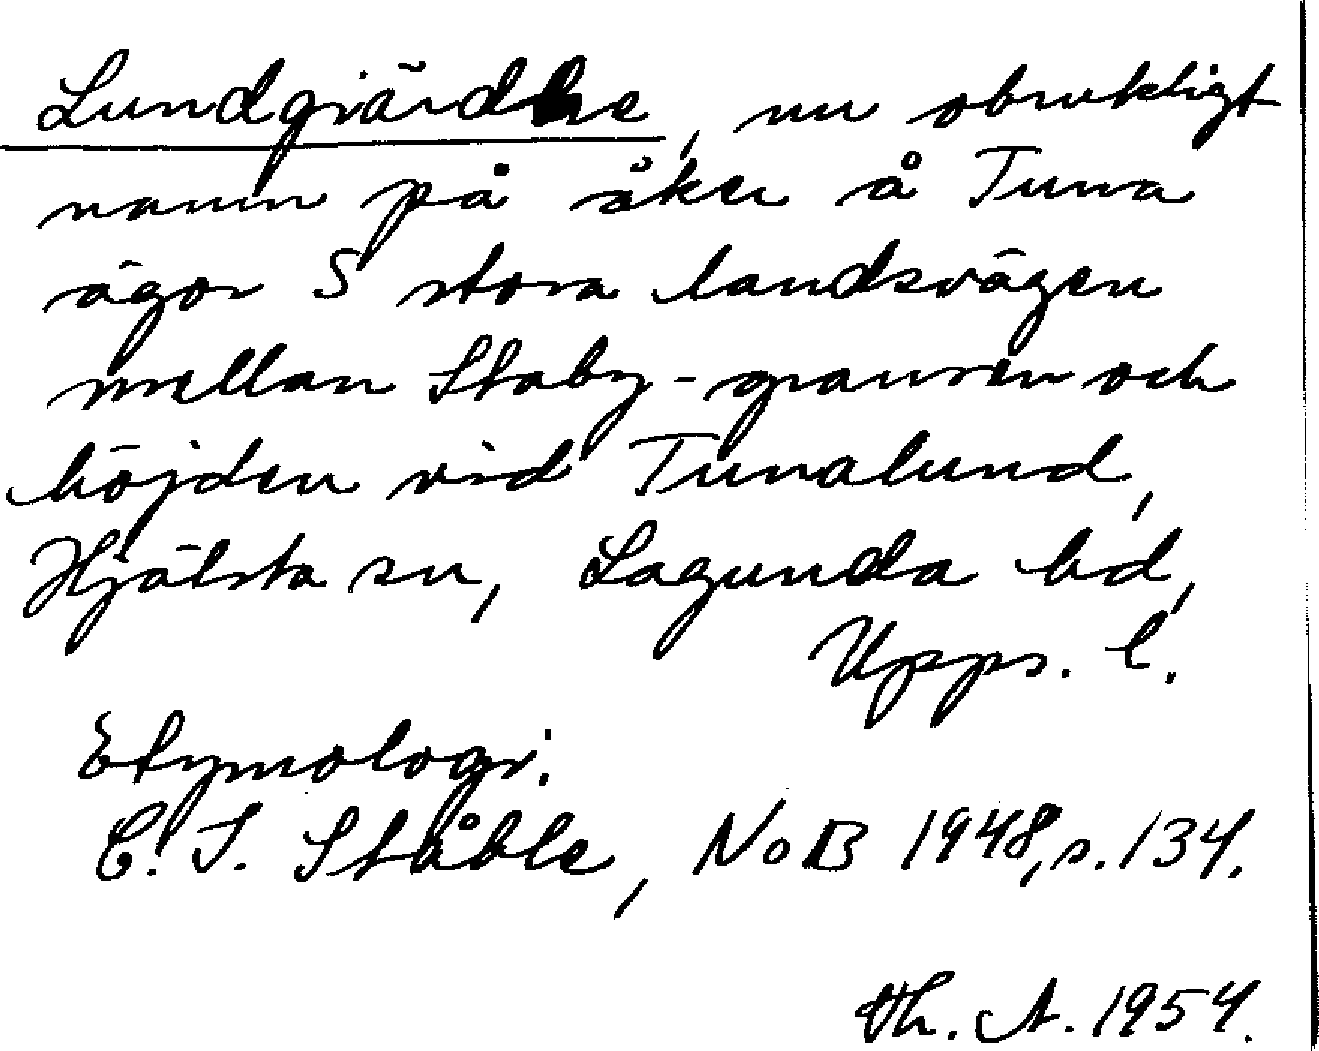 Lundgiärdhe, nu obrukligt
namn på åker å Tuna
ägor S stora landsvägen
mellan Staby-gränsen och
höjden vid Tunalund,
Hjälsta sn, Lagunda hd,
Upps. l.
Etymologi:
C. I. Ståhle, NoB 1948, s. 134.
Th. A. 1954.